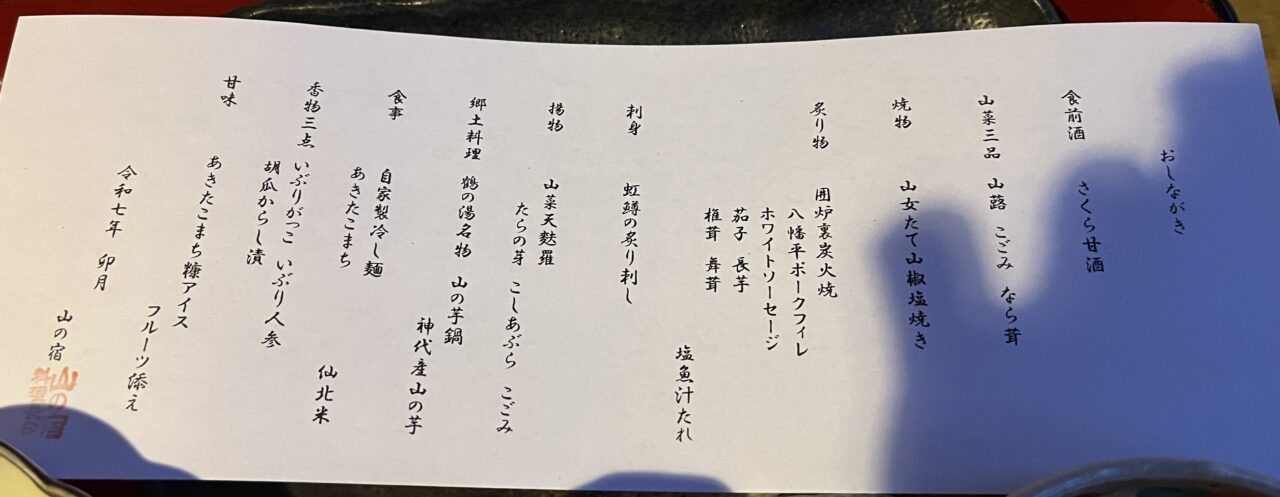 おしながき
食前酒
さくら甘酒
山菜三品 山蕗 こごみ なら茸
焼物 山女たて山椒塩焼き
炙り物 囲炉裏炭火焼
八幡平ポークフィレ
ホワイトソーセージ
茄子 長芋
椎茸 舞茸
塩魚汁たれ
刺身 虹鱒の炙り刺し
揚物 山菜天麩羅
たらの芽 こしあぶら こごみ
郷土料理 鶴の湯名物 山の芋鍋
神代産山の芋
食事 自家製冷し麺
あきたこまち
仙北米
香物三点 いぶりがっこ いぶり人参
胡瓜からし漬
甘味
あきたこまち糠アイス
フルーツ添え
令和七年 卯月
山の宿
山の宿